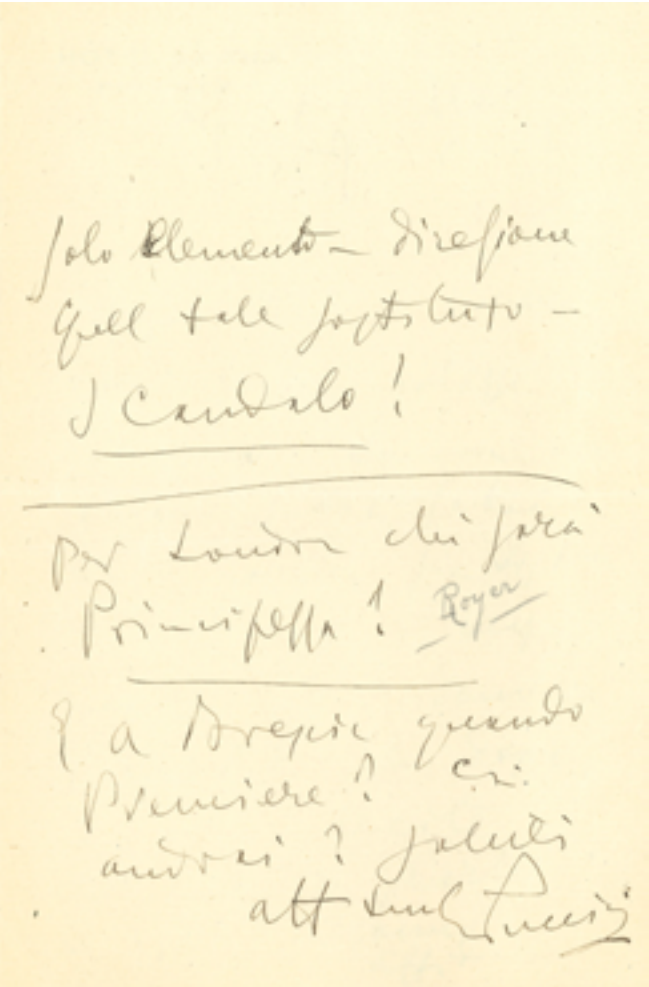 solo elemento – direzione
quell tale sostituto –
Scandalo!
Per Londra chi sarà
Principessa?
E a Brescia quando
Premiere? Ci
andrai? saluti
aff Puccini